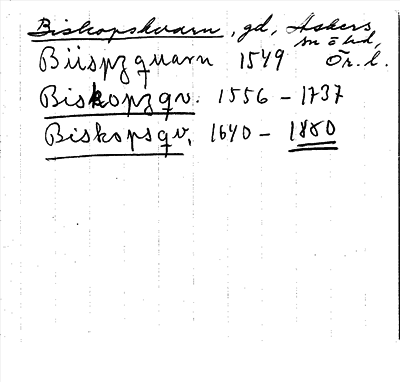 Biskopskvarn, gd, Askers
sn ö hd,
Biispzquarn 1549 Ör. l.
Biskopzqv. 1556 - 1737
Biskopsqv, 1640 - 1880